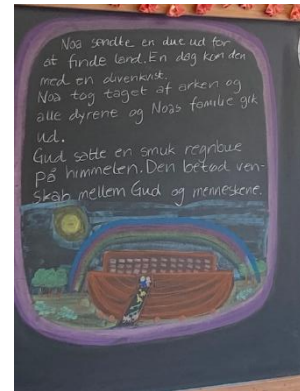 Noa sendte en due ud for
at finde land. En dag kom den
med en olivenkvist.
Noa tog taget af arken og
alle dyrene og Noas familie gik
ud.
Gud satte en smuk regnbue
på himmelen. Den betød ven-
skab mellem Gud og menneskene.